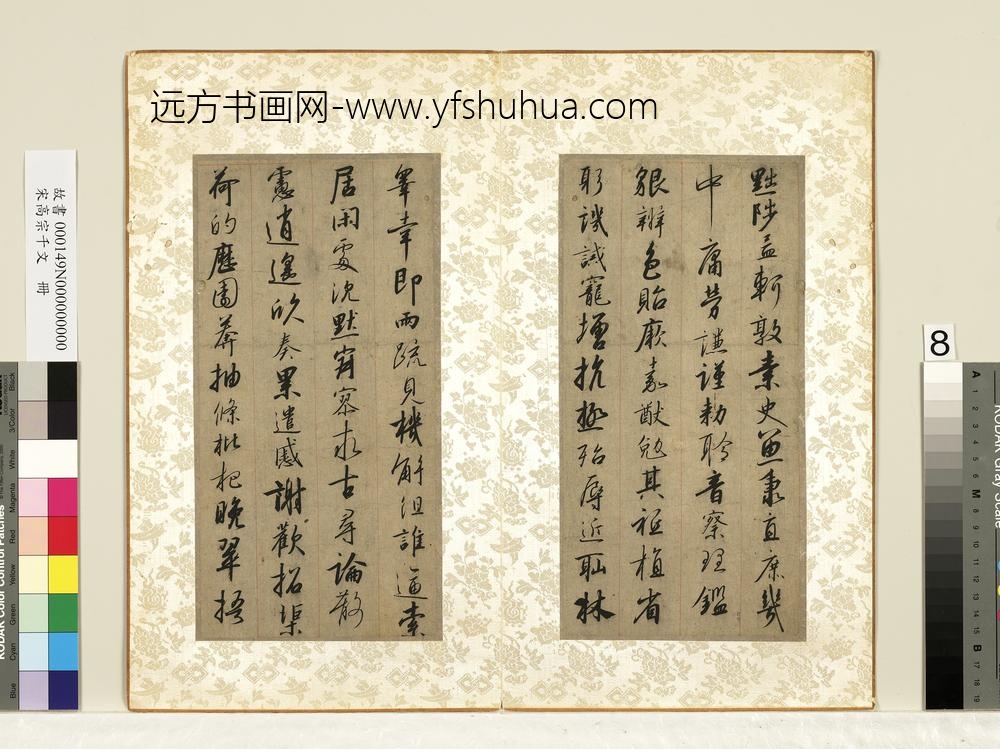 远方书画网-www.yfshuhua.com
黜陟孟軻敦素史魚秉直庶幾
中庸勞謙謹勑聆音察理鑑
貌辨色貽厥嘉猷勉其祗植省
躬譏誡寵增抗極殆辱近恥林
皋幸即兩疏見機解組誰逼索
居閑處沈默寂寥求古尋論散
慮逍遙欣奏累遣慼謝歡招渠
荷的歷園莽抽條枇杷晚翠梧
故書 000149N000000000
宋高宗千文 冊
8
KODAK Color Control Patches
Blue
Cyan
Green
Yellow
Red
Magenta
White
3/Color
Black
KODAK Gray Scale
A 1 2 3 4 5 6 M 8 9 10 11 12 13 14 15 B 17 18 19